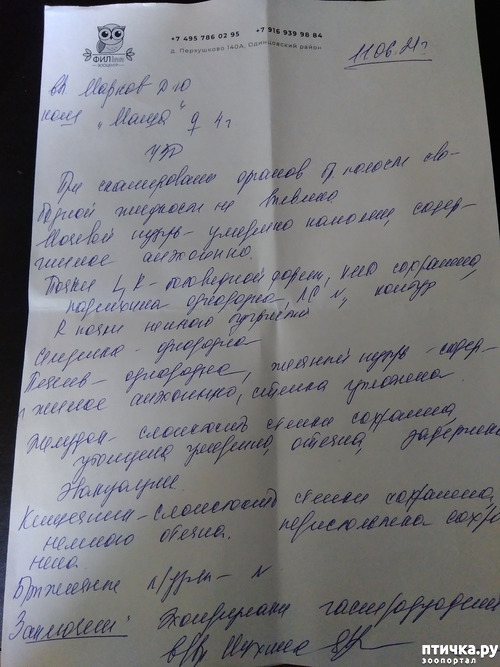 +7 495 786 02 95 +7 916 939 98 84
д. Перхушково 140А, Одинцовский район
ФИЛinn
11.06.21г
вл Марков Д Ю
кош "Маша" ♀ 4 г
УЗИ
При сканировании органов бр полости сво-
бодной жидкости не выявлено
Мочевой пузырь - умеренно наполнен, содер-
жимое анэхогенно.
Почки L, R - бобовидной формы, КМО сохранена,
паренхима однородна, ЛС N, контур
R почки немного бугристый
Селезенка - однородна
Печень - однородна, желчный пузырь - содер-
жимое анэхогенно, стенка утолщена.
Желудок - слоистость стенки сохранена,
утолщена умеренно, отечна, задержка
эвакуации.
Кишечник - слоистость стенки сохранена,
немного отечна. перистальтика сохра-
нена.
Брыжеечные л/узлы - N
Заключение: Эхопризнаки гастродуоденита
в/вр
птичка.ру
зоопортал